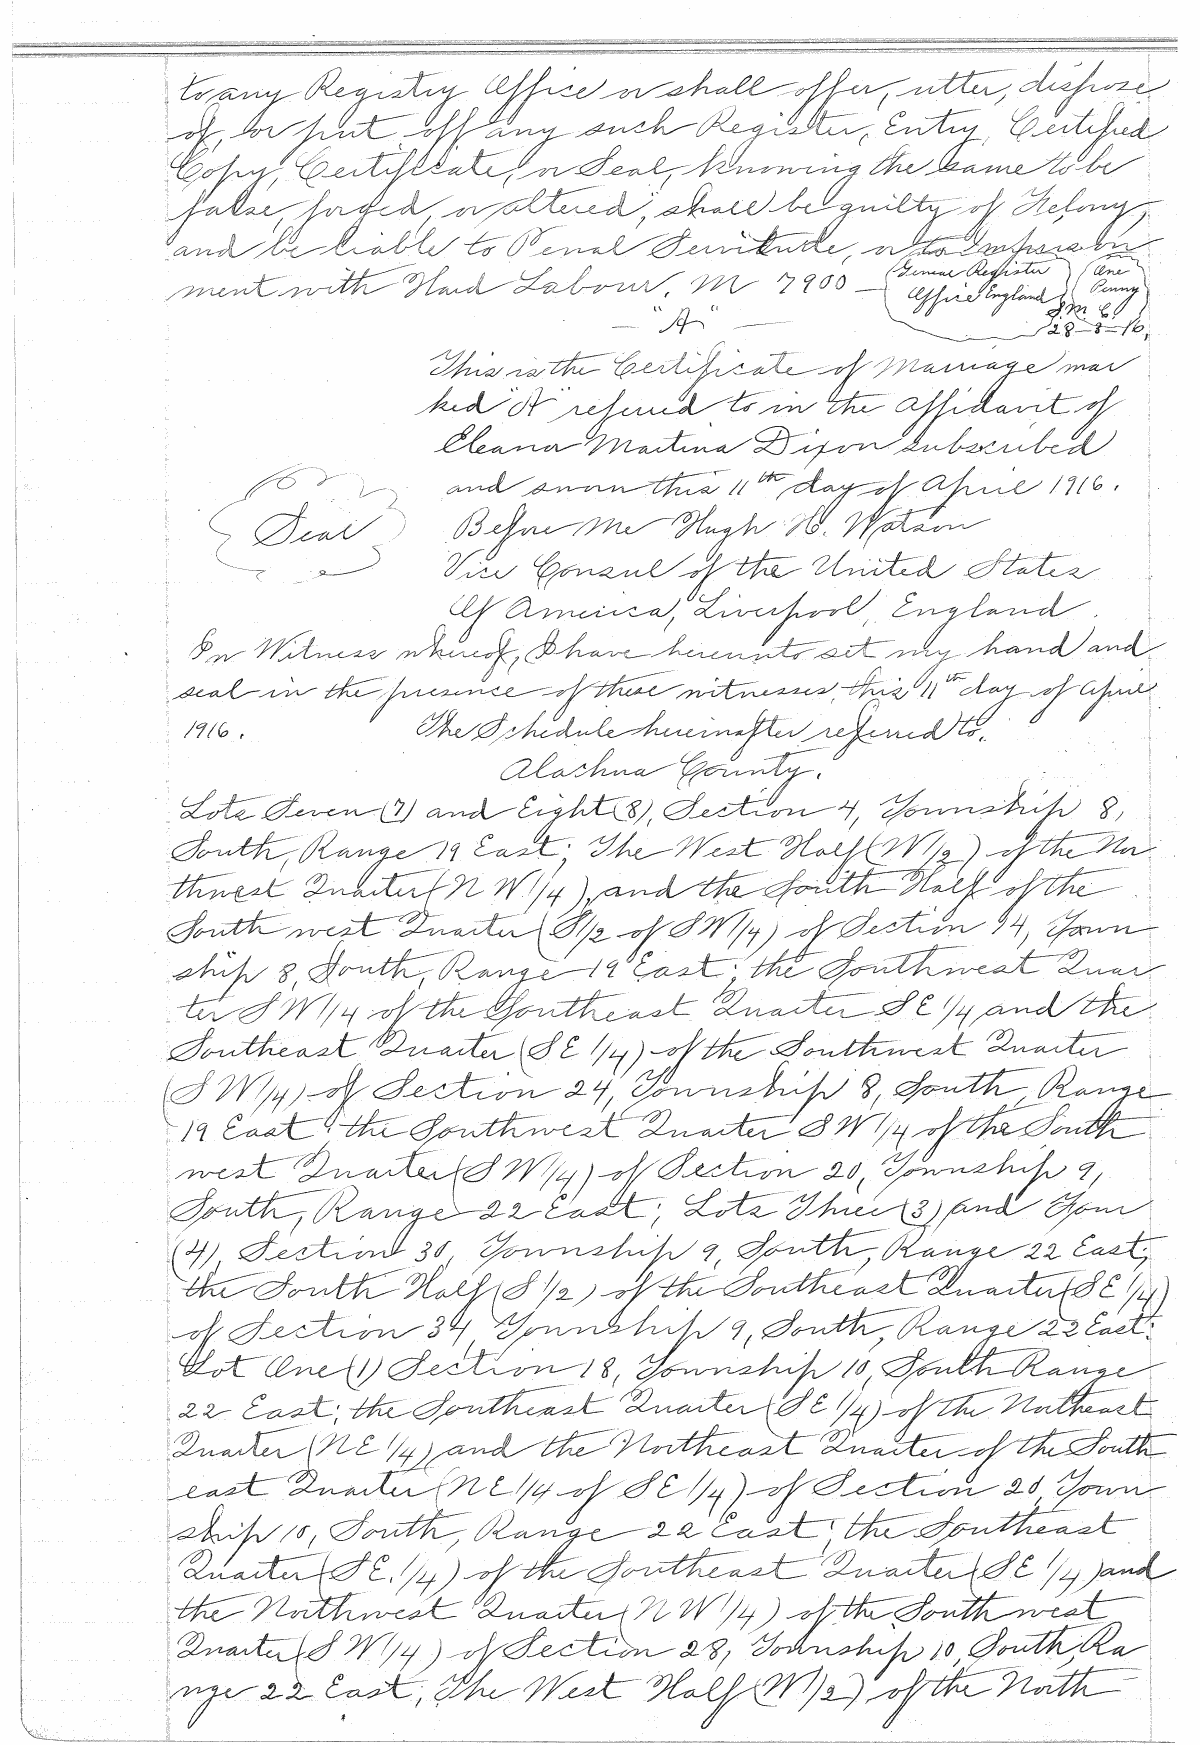 to any Registry Office or shall offer, utter, dispose
of, or put off any such Register, Entry, Certified
Copy, Certificate, or Seal, knowing the same to be
false, forged, or altered, shall be guilty of Felony,
and be liable to Penal Servitude, or to Imprison
ment with Hard Labour. M 7900 —
General Register
Office England
One
Penny
S. M. C.
28-3-16.
— "A" —
This is the Certificate of Marriage mar
ked "A" referred to in the affidavit of
Eleanor Martina Dixon subscribed
and sworn this 11th day of April 1916.
Seal
Before Me Hugh H. Watson
Vice Consul of the United States
Of America, Liverpool, England.
In Witness whereof, I have hereunto set my hand and
seal in the presence of these witnesses, this 11th day of April
1916. The Schedule hereinafter referred to.
Alachua County.
Lots Seven (7) and Eight (8), Section 4, Township 8,
South, Range 19 East; The West Half (W 1/2) of the Nor
thwest Quarter (N W 1/4), and the South Half of the
South west Quarter (S 1/2 of S W 1/4) of Section 14, Town
ship 8, South, Range 19 East; the Southwest Quar
ter S W 1/4 of the Southeast Quarter S E 1/4 and the
Southeast Quarter (S E 1/4) of the Southwest Quarter
(S W 1/4) of Section 24, Township 8, South, Range
19 East; the Southwest Quarter S W 1/4 of the South
west Quarter (S W 1/4) of Section 20, Township 9,
South, Range 22 East; Lots Three (3) and Four
(4), Section 30, Township 9, South, Range 22 East;
the South Half (S 1/2) of the Southeast Quarter (S E 1/4)
of Section 34, Township 9, South, Range 22 East;
Lot One (1) Section 18, Township 10, South Range
22 East; the Southeast Quarter (S E 1/4) of the Northeast
Quarter (N E 1/4) and the Northeast Quarter of the South
east Quarter (N E 1/4 of S E 1/4) of Section 20, Town
ship 10, South, Range 22 East; the Southeast
Quarter (S E. 1/4) of the Southeast Quarter (S E 1/4) and
the Northwest Quarter (N W 1/4) of the South west
Quarter (S W 1/4) of Section 28, Township 10, South, Ra
nge 22 East; The West Half (W 1/2) of the North